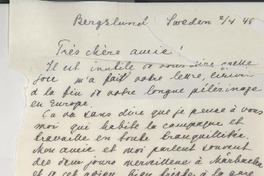 Bergslund Sweden 2/4 48
Très chère amie!
Il est inutile de vous dire quelle
joie m'a fait votre lettre, écrite
à la fin de votre longue pèlerinage
en Europe.
Ça va sans dire que je pense à vous
moi que habite la campagne et
travaille en toute tranquillité.
Mon amie et moi parlent souvent
des deux jours merveilleux à
et cet